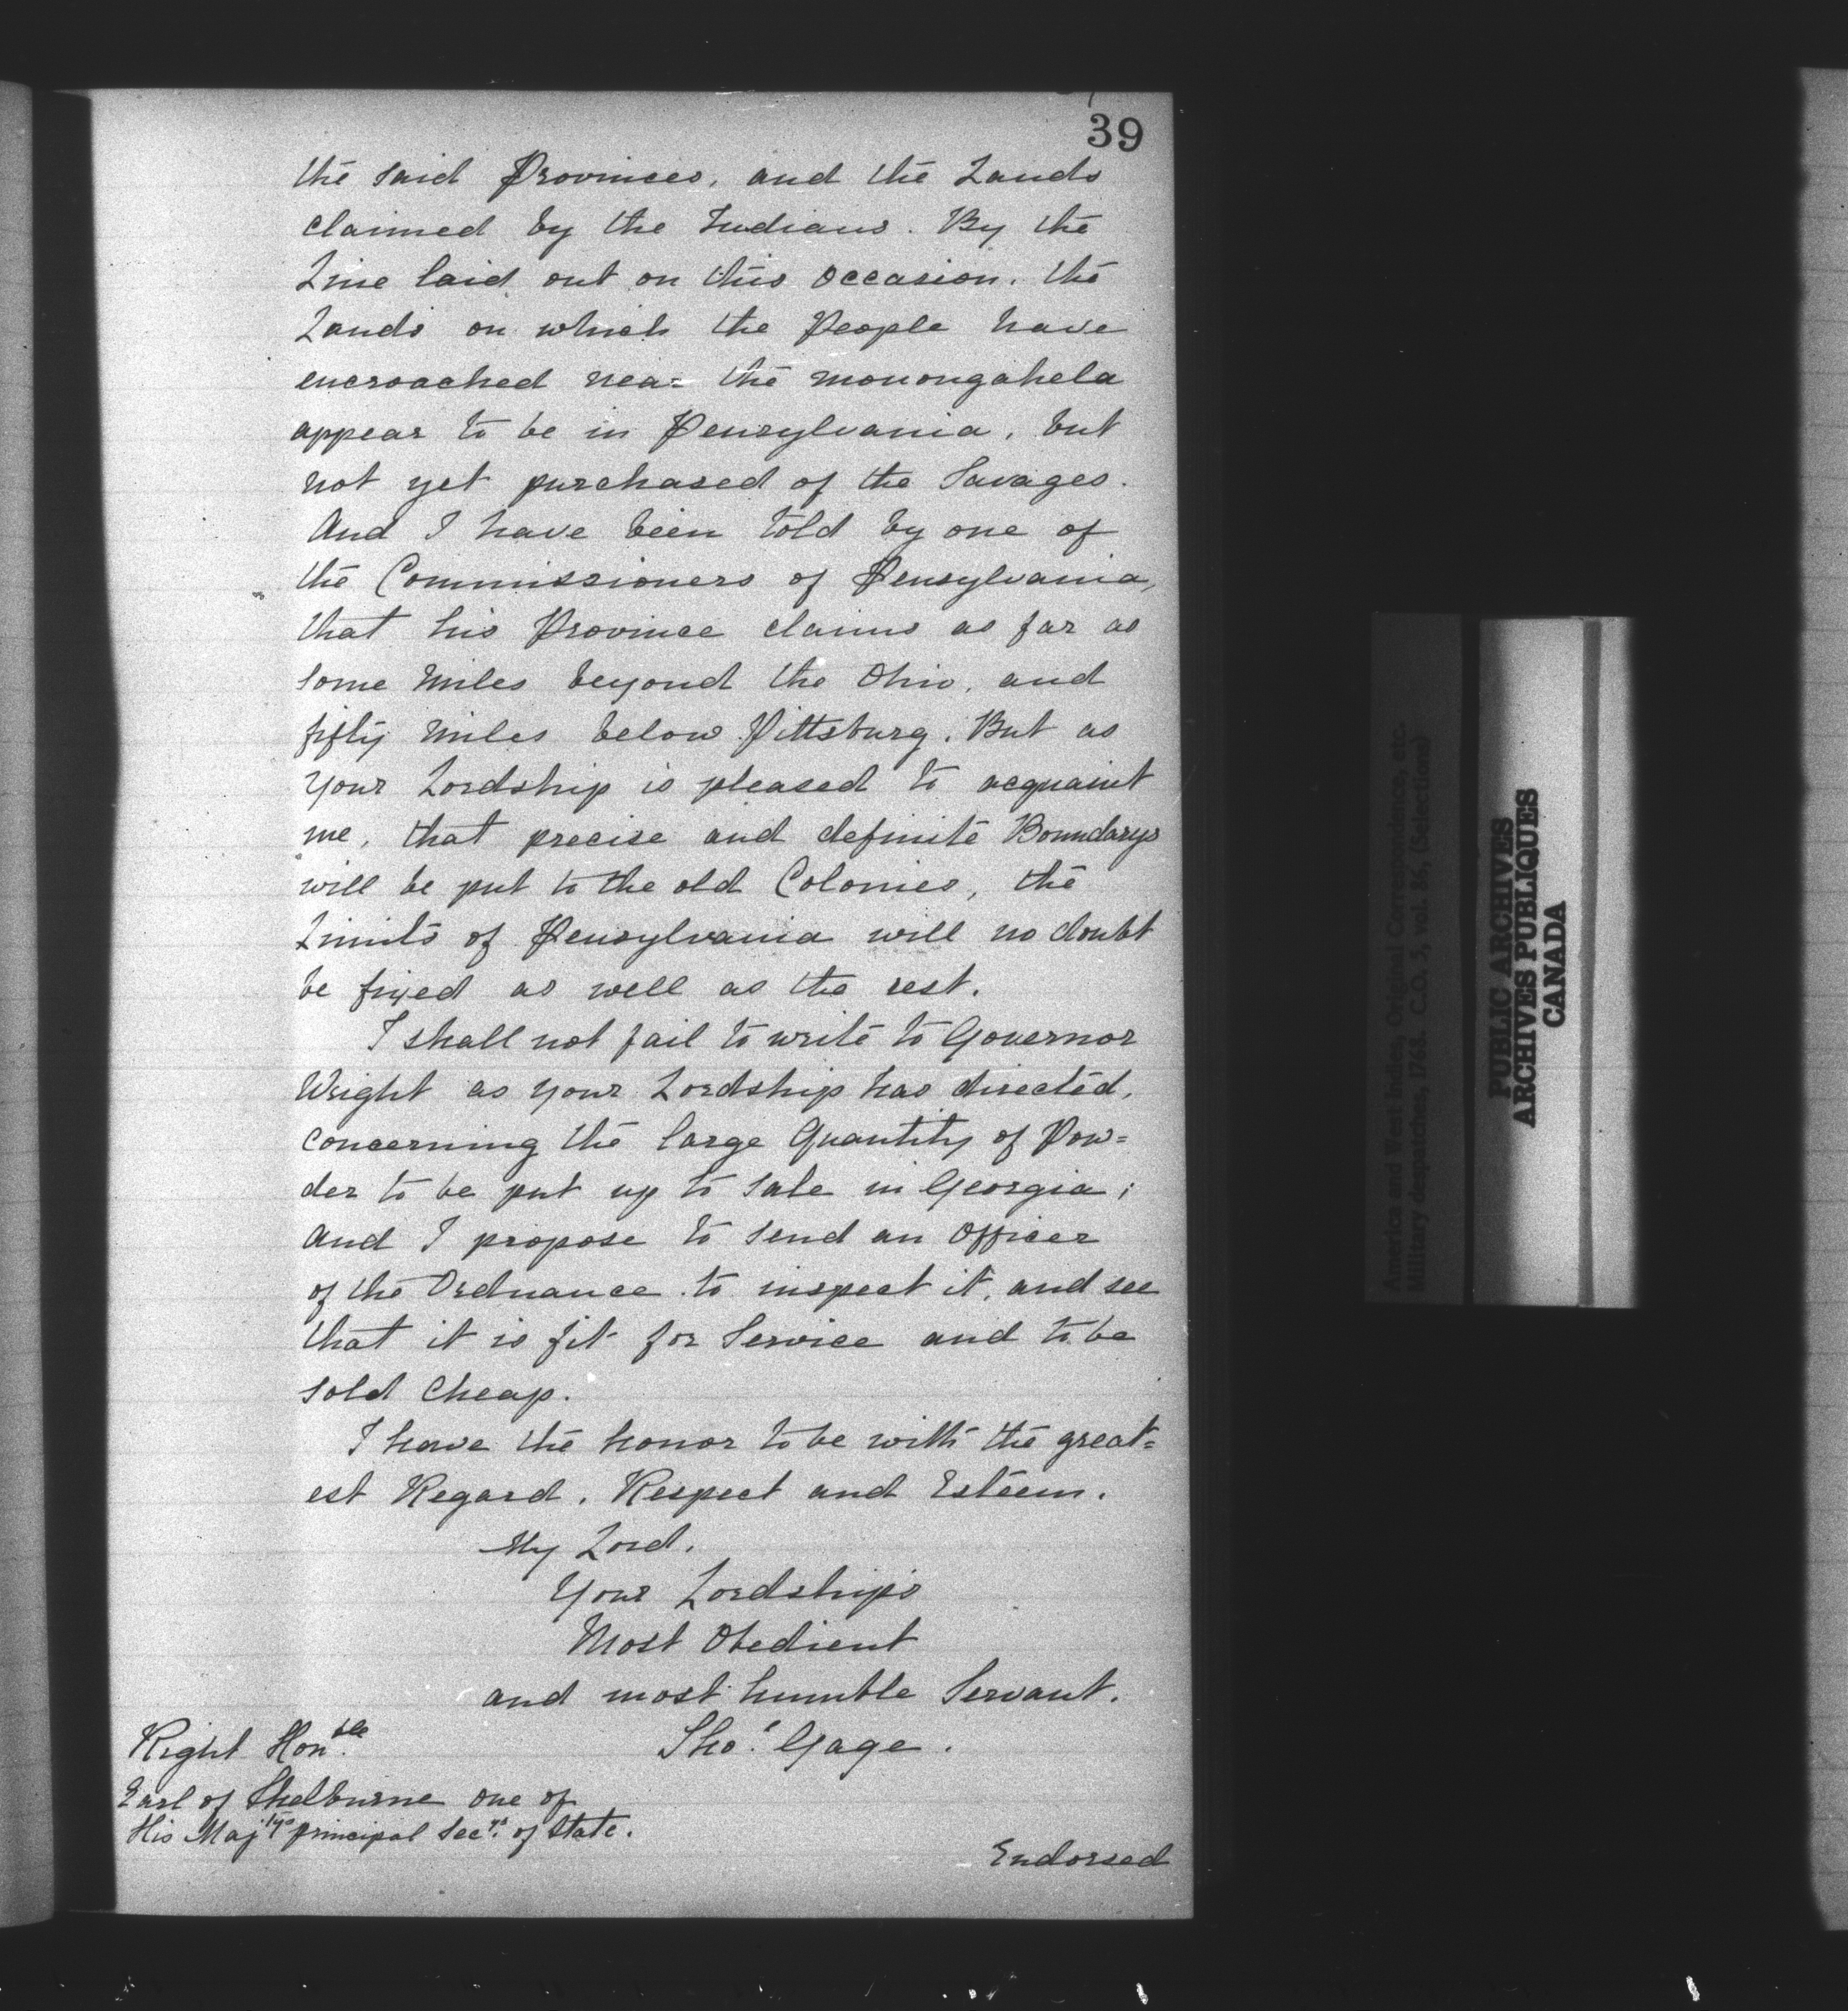 39
the said Provinces, and the Lands
claimed by the Indians. By the
Line laid out on this occasion, the
Lands on which the People have
encroached near the Monongahela
appear to be in Pensylvania, but
not yet purchased of the Savages.
And I have been told by one of
the Commissioners of Pensylvania,
that his Province claims as far as
some Miles beyond the Ohio, and
fifty Miles below Pittsburg. But as
your Lordship is pleased to acquaint
me, that precise and definite Boundarys
will be put to the old Colonies, the
Limits of Pensylvania will no doubt
be fixed as well as the rest.
I shall not fail to write to Governor
Wright as your Lordship has directed,
concerning the large Quantity of Pow=
der to be put up to Sale in Georgia;
and I propose to send an Officer
of the Ordnance to inspect it, and see
that it is fit for Service and to be
sold Cheap.
I have the honor to be with the great=
est Regard, Respect and Esteem.
My Lord,
Your Lordship's
Most Obedient
and most humble Servant.
Tho.s Gage.
Right Hon.ble
Earl of Shelburne one of
His Maj.tys principal Sec.rs of State.
Endorsed
America and West Indies, Original Correspondence, etc.
Military despatches, 1768. C.O. 5, vol. 86, (Selection)
PUBLIC ARCHIVES
ARCHIVES PUBLIQUES
CANADA